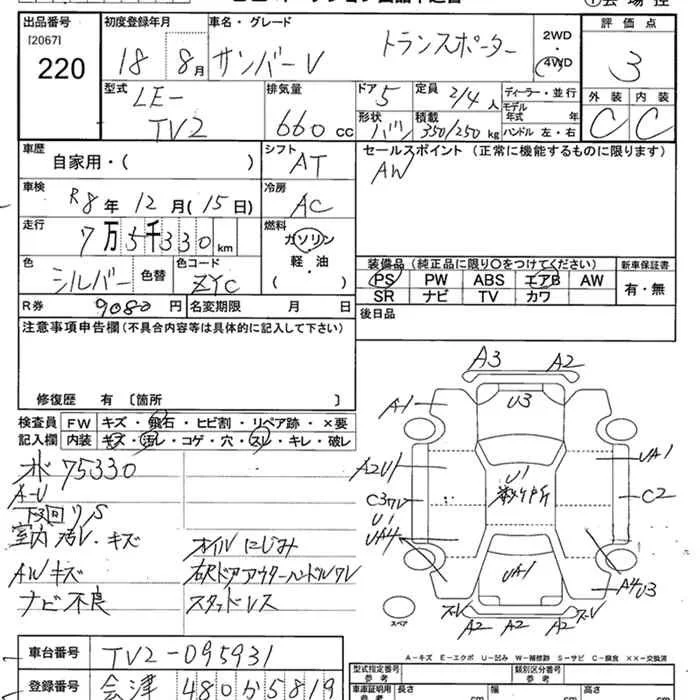 出品番号 [2067] 220
初度登録年月 18年 8月
車名・グレード サンバーV トランスポーター
2WD ・ 4WD
評価点 3
型式 LE- TV2
排気量 660 CC
ドア 5
形状 バン
定員 2/4 人
積載 350/250 kg
ディーラー・並行
モデル年式 年
ハンドル 左・右
外装 C
内装 C
車歴 自家用・( )
シフト AT
セールスポイント (正常に機能するものに限ります)
AW
車検 R8年 12月(15日)
冷房 AC
走行 7万5千330km
燃料 ガソリン・軽・油 ( )
色 シルバー 色替
色コード ZYC
装備品(純正品に限り○をつけてください)
PS PW ABS エアB AW
SR ナビ TV カワ
新車保証書 有・無
R券 9080 円
名変期限 月 日
後日品
注意事項申告欄(不具合内容等は具体的に記入して下さい)
修復歴 有 〔箇所 〕
検査員記入欄
FW キズ・飛石・ヒビ割・リペア跡・×要
内装 キズ・汚レ・コゲ・穴・スレ・キレ・破レ
75330
A-U
下廻リS
室内汚レ・キズ
AWキズ
ナビ不良
オイルにじみ
右尺ドアアウターハンドルワレ
スタッドレス
A3 A2
A1 U3
A2U1 U1 UA1
C3ワレ C2
U1
UA4
UA1
A4U3
ズレ ズレ
A2 A2 A2
スペア
A-キズ E-エクボ U-凹み W-補修跡 S-サビ C-腐食 ××-交換済
車台番号 TV2-095931
登録番号 会津 480か5819
型式指定番号 参考
類別区分番号 参考
車庫証明用 参考
長さ cm
幅 cm
高さ cm